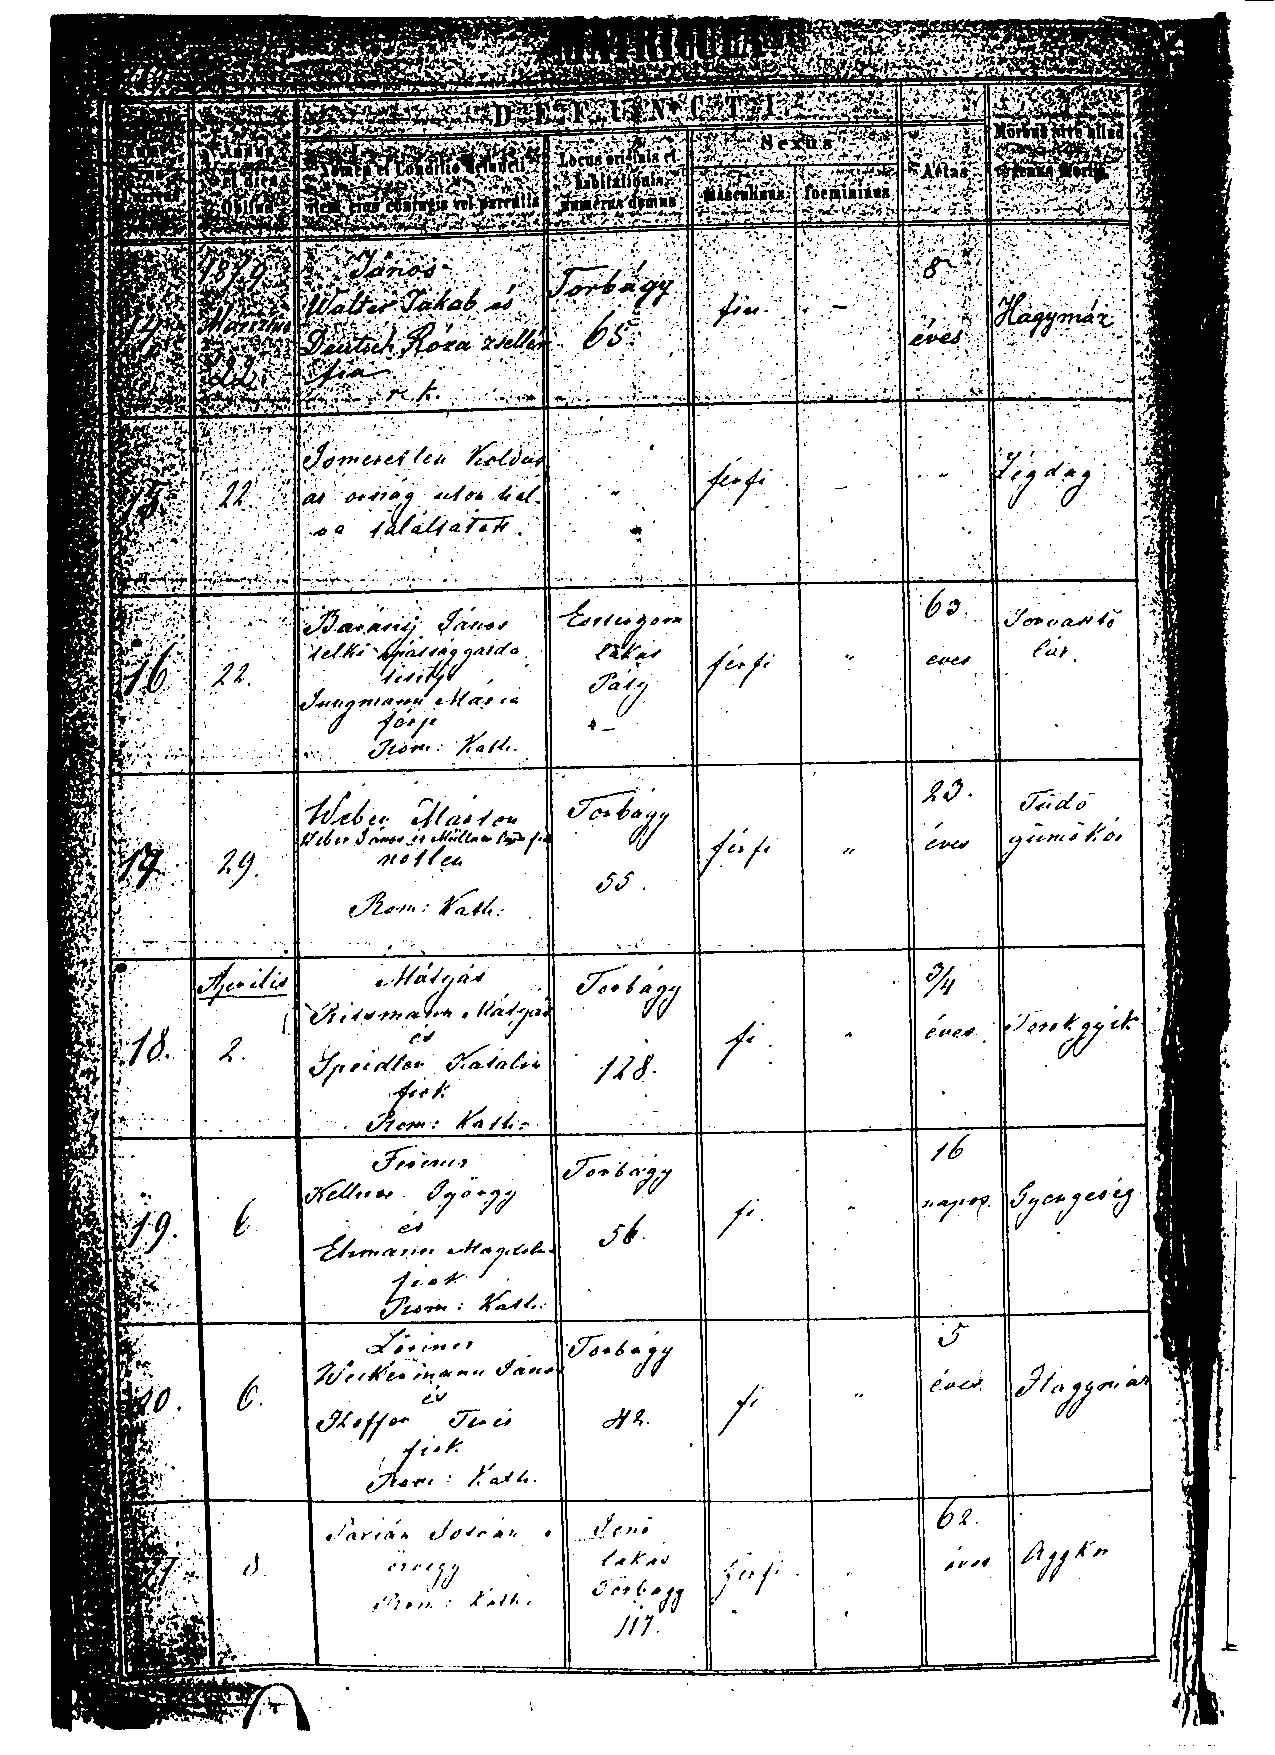 MATRICULA
DEFUNCTI
Annus
et dies
Obitus
Nomen et Conditio Defuncti
item ejus conjugis vel parentis
Locus originis et
habitationis,
numerus domus
Sexus
masculinus
foemininus
Aetas
Morbus vero aliud
genus Mortis
14
1879
Martius
22.
János
Walter Jakab és
Deutsch Róza zsellér
fia
r. k.
Torbágy
65
fiu
–
8
éves
Hagymáz
15.
22.
Ismeretlen Koldus
az országuton hal-
va találtatott.
"
"
férfi
–
"
Légdag
16
22.
Barány János
telki
tisztje
Jungmann Mária
férje
Rom: Kath.
Esztergom
lakás
Páty
férfi
"
63.
éves
Sorvasztó
láz.
17
29.
Weber Márton
Weber János és Müllner fia
nőtlen
Rom: Kath:
Torbágy
55.
férfi
"
23.
éves
Tüdő
gümőkór
Április
18.
2.
Mátyás
Ritzmann Mátyás
és
Speidler Katalin
fiok
Rom: Kath:
Torbágy
128.
fi
"
3/4
éves
Torokgyík
19.
6
Ferencz
Kellner György
és
Ehmann Magdolna
fiok
Rom: Kath:
Torbágy
56.
fi.
"
16
napos.
Gyengeség
20.
6.
Lőrincz
Weckermann János
és
Teréz
fiok
Rom: Kath.
Torbágy
42.
fi
"
5
éves.
Hagymáz
8
István
özvegy
Rom: Kath.
lakás
Torbágy
117.
férfi
"
62.
éves
Aggkor